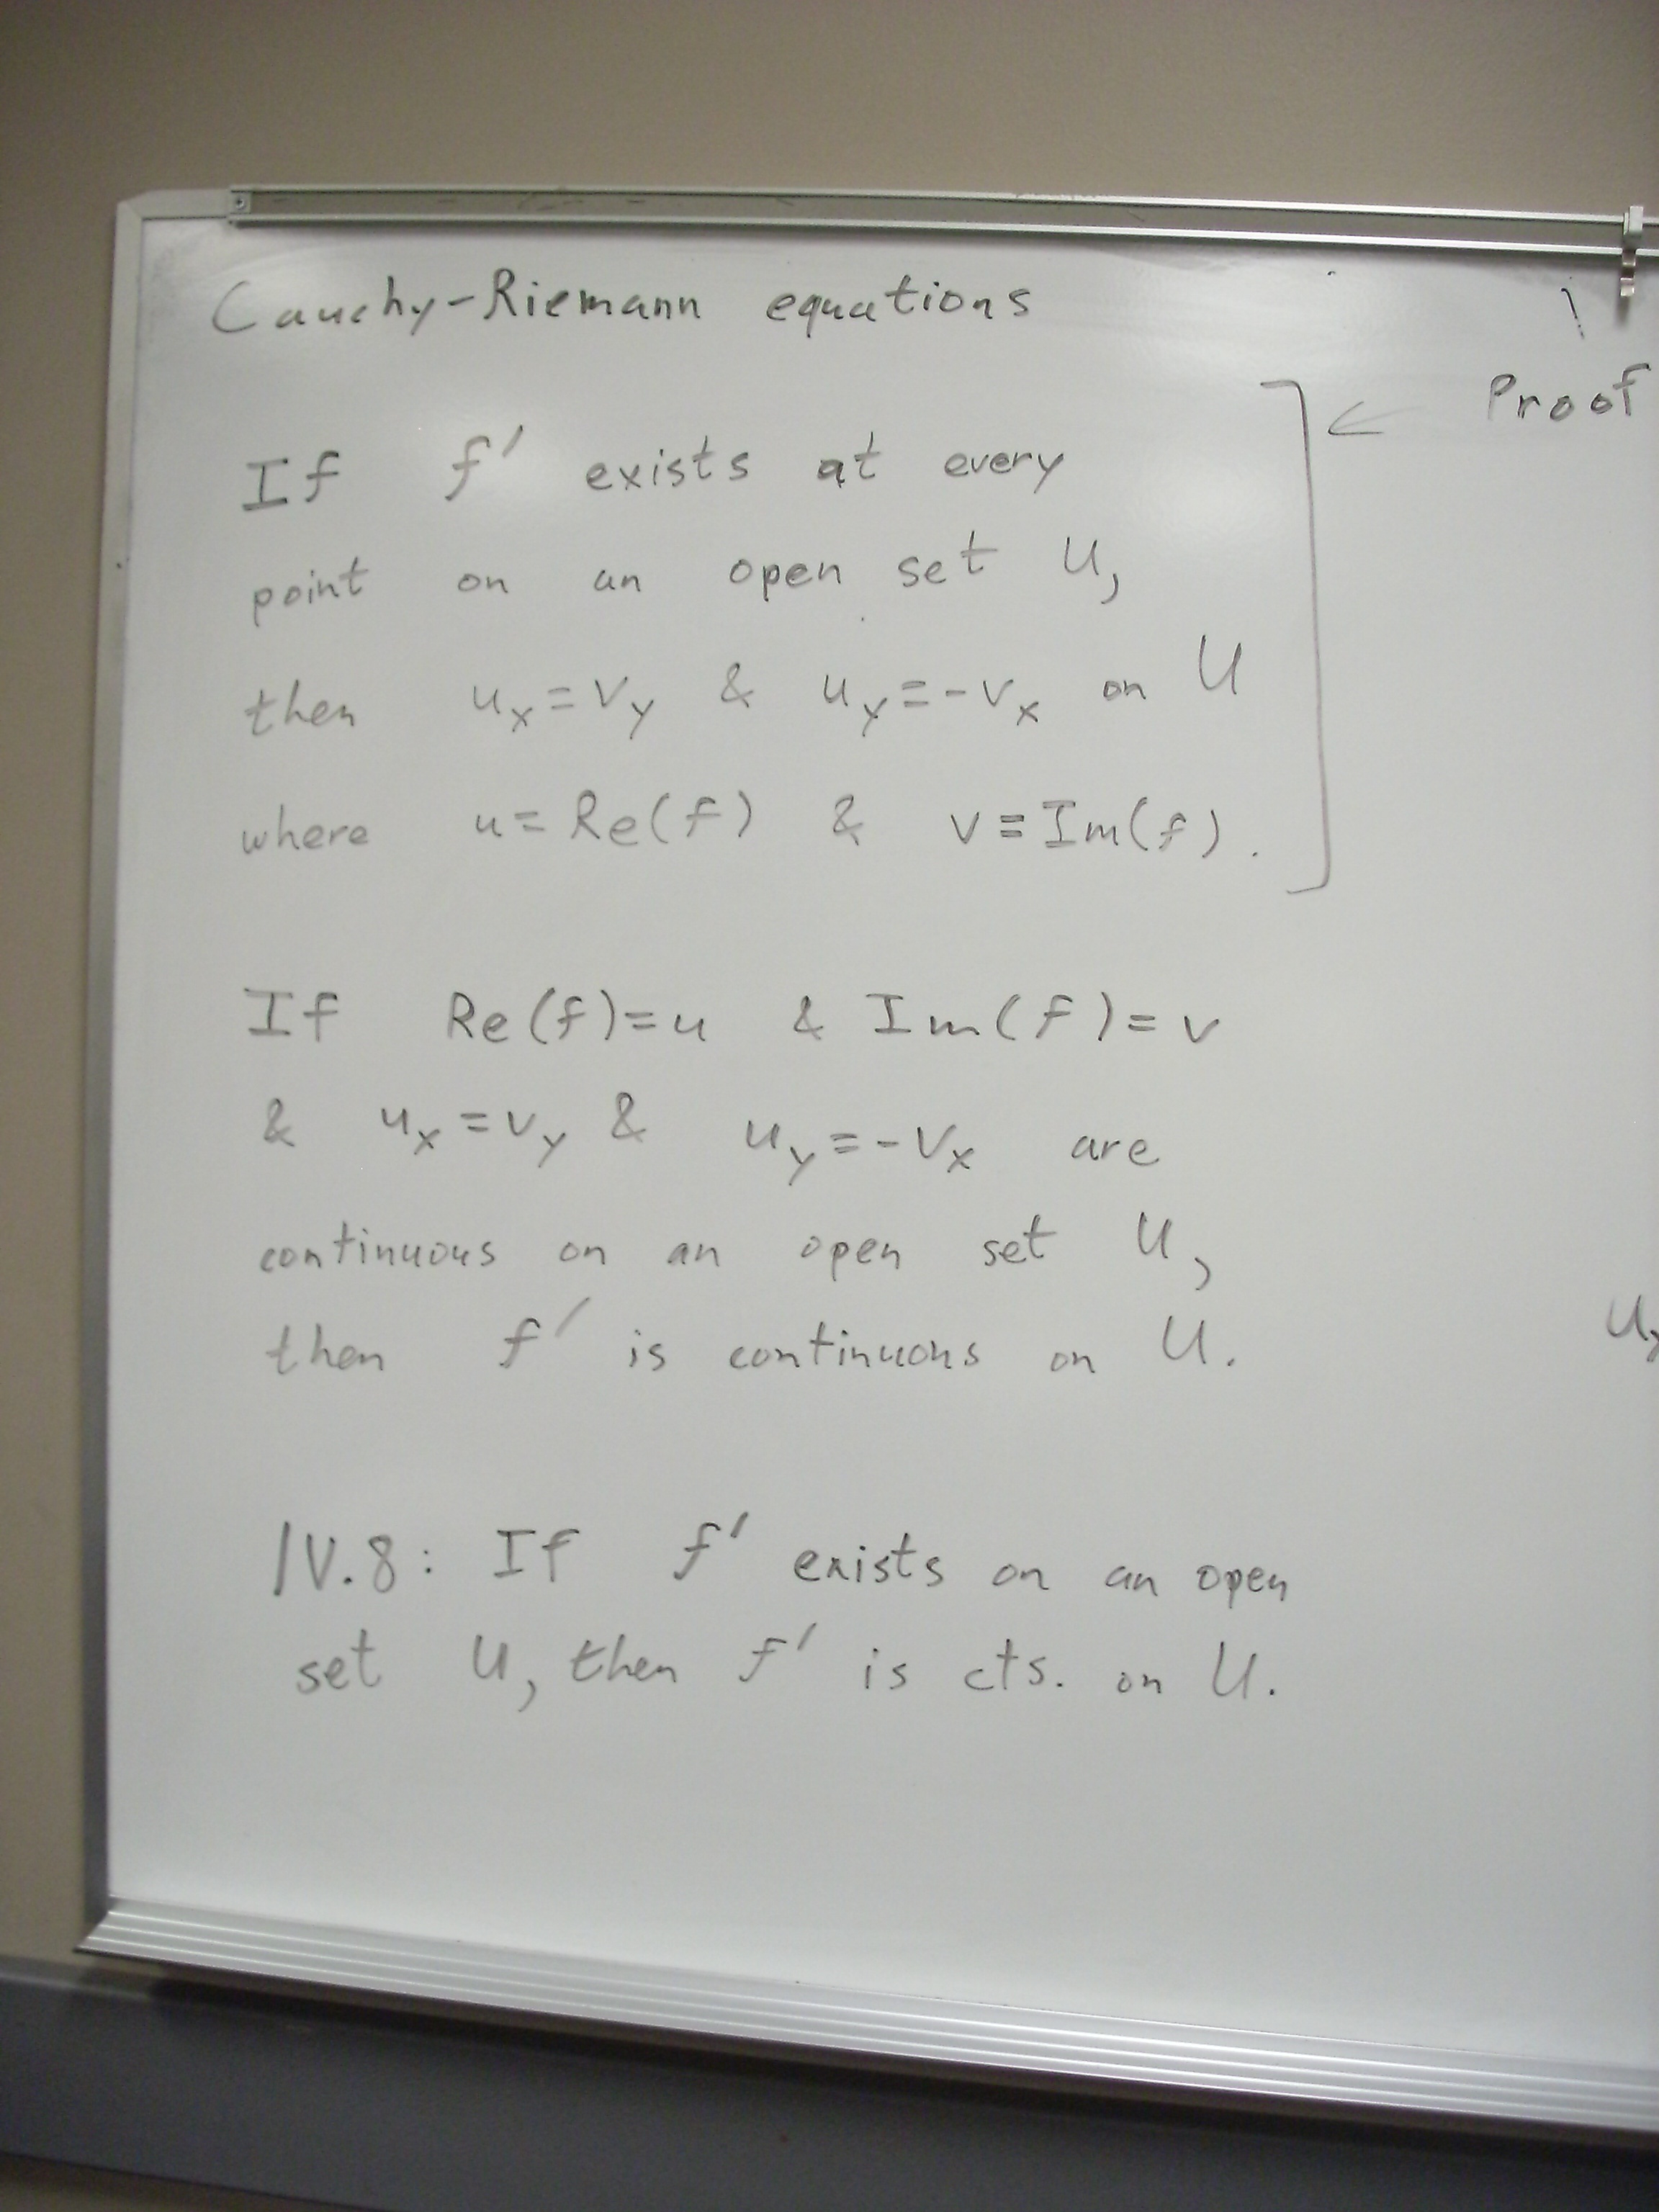 Cauchy-Riemann equations
Proof
If f' exists at every
point on an open set U,
then u_x = v_y & u_y = -v_x on U
where u = Re(f) & v = Im(f).
If Re(f) = u & Im(f) = v
& u_x = v_y & u_y = -v_x are
continuous on an open set U,
then f' is continuous on U.
IV.8: If f' exists on an open
set U, then f' is cts. on U.